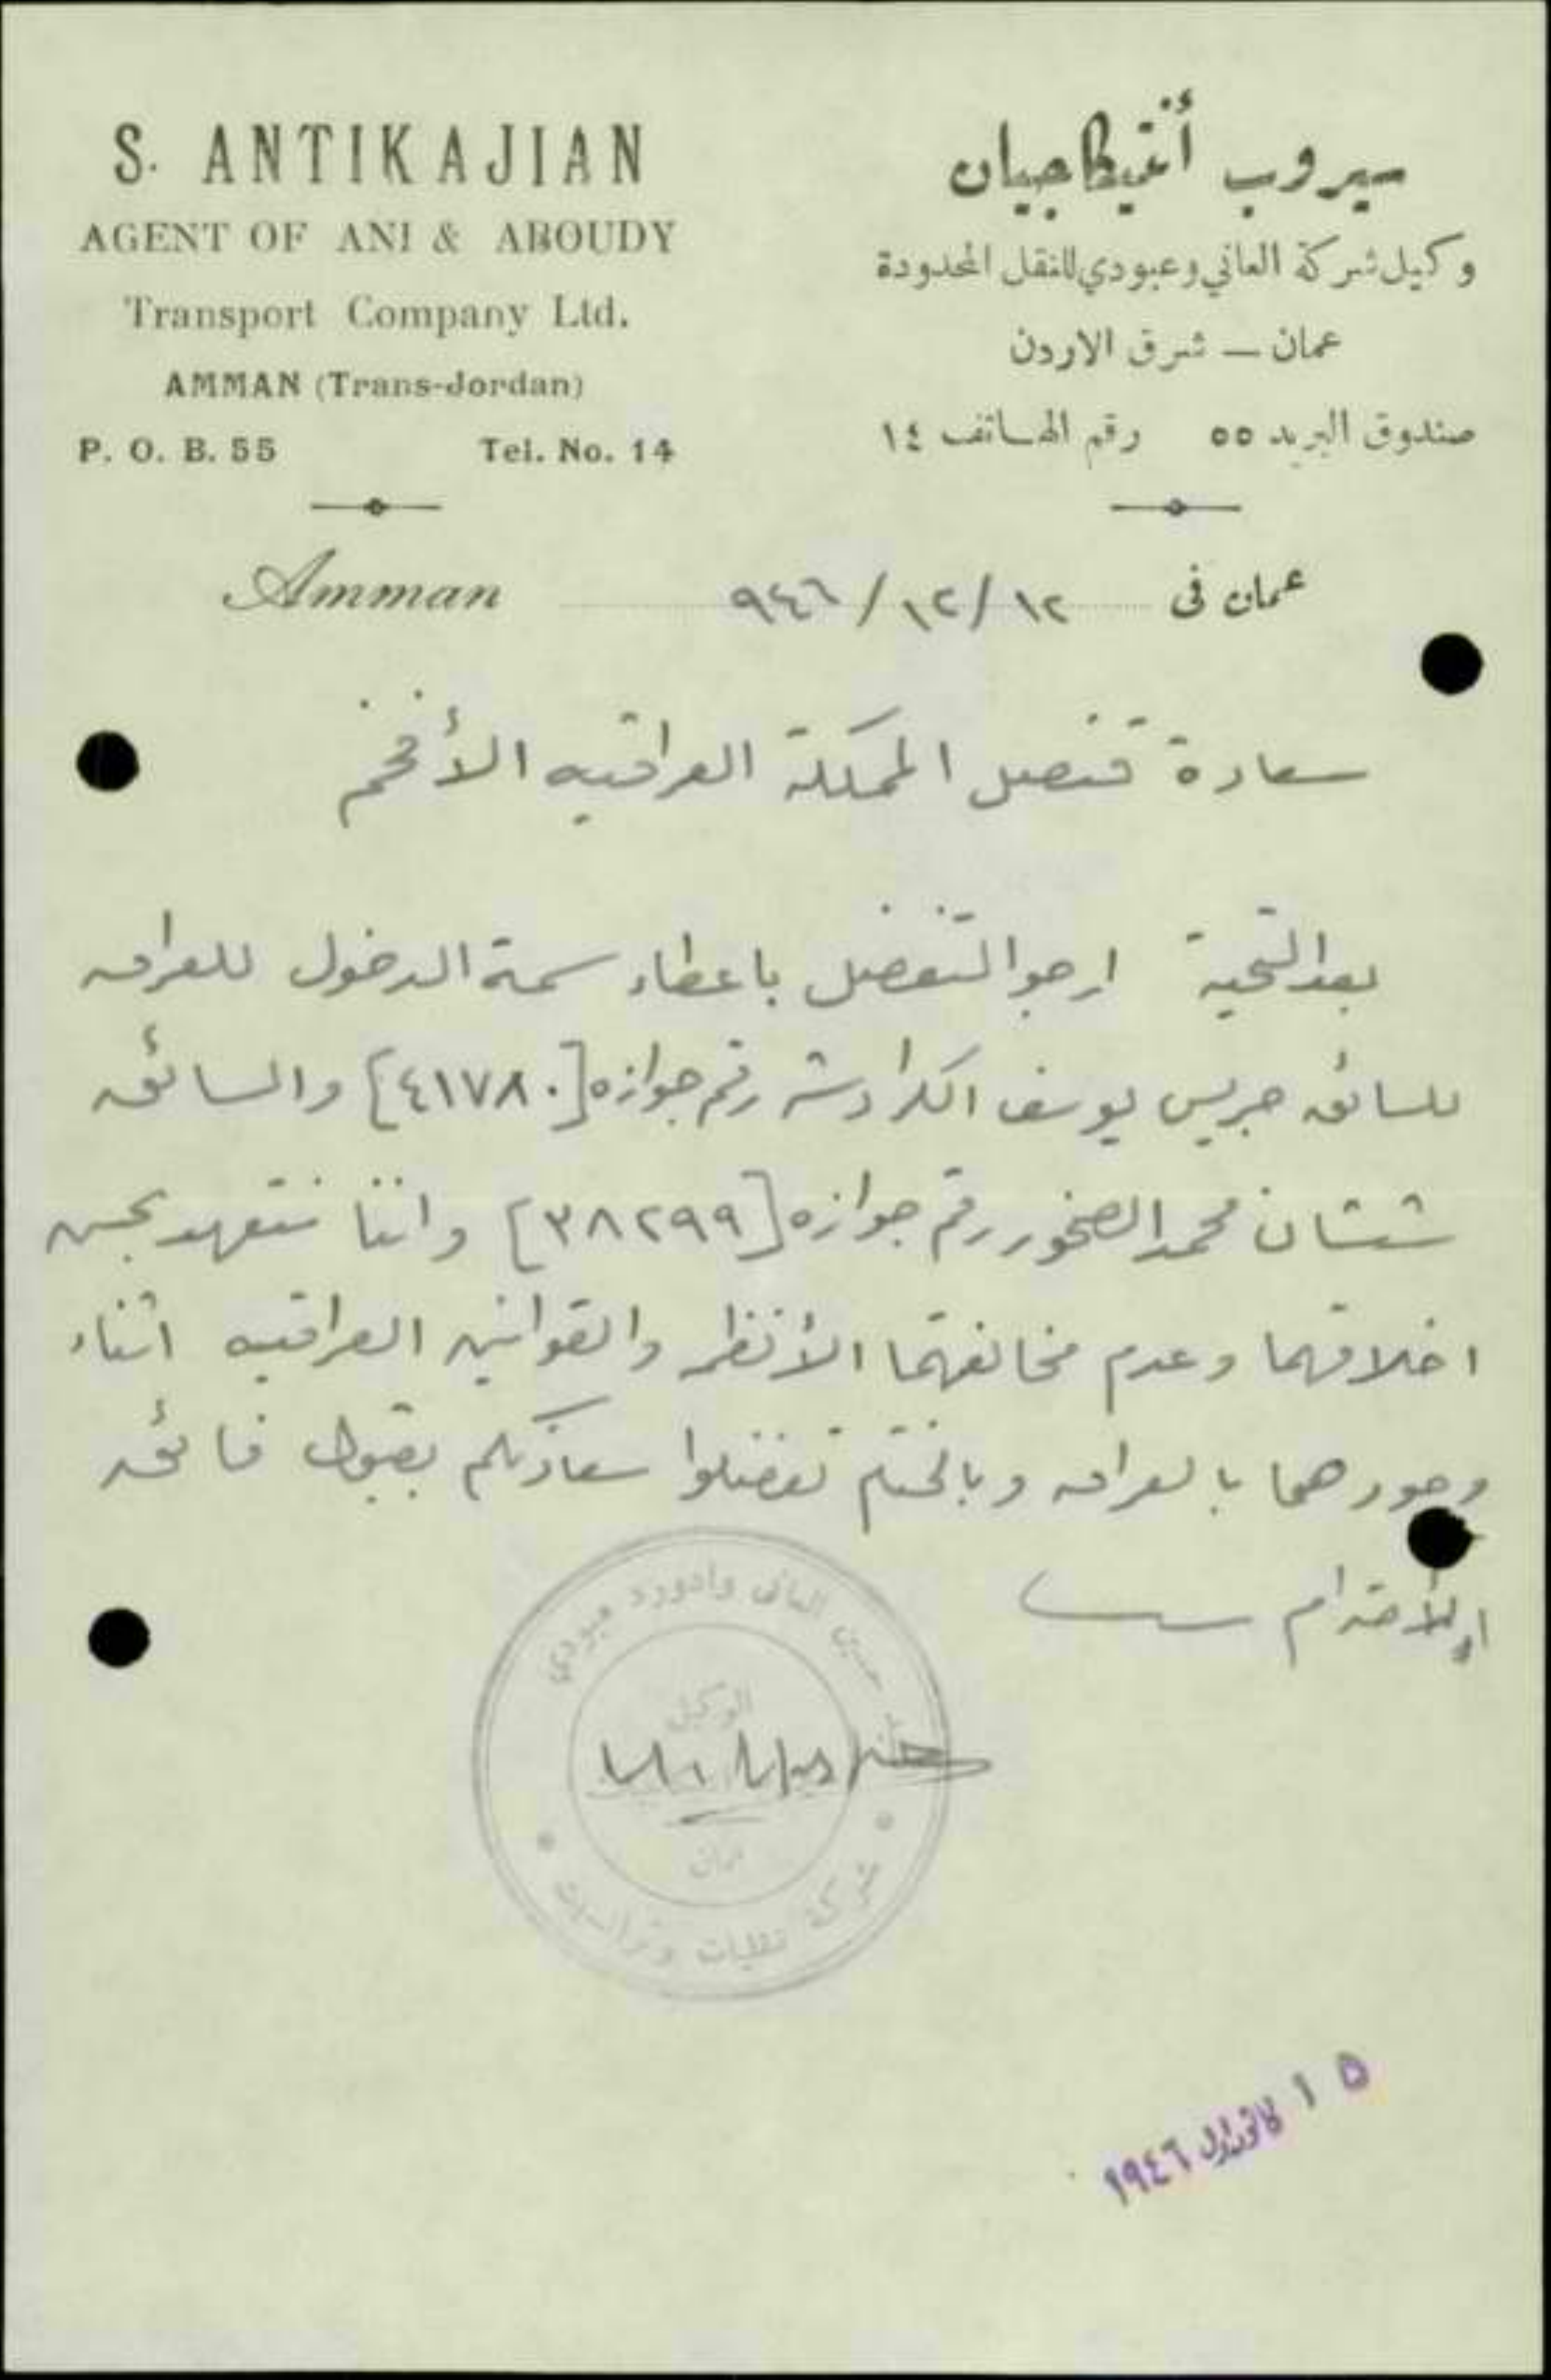 S. ANTIKAJIAN
AGENT OF ANI & ABOUDY
Transport Company Ltd.
AMMAN (Trans-Jordan)
P. O. B. 55 Tel. No. 14
سيروب أنتيكاجيان
وكيل شركة العاني وعبودي للنقل المحدودة
عمان — شرق الاردن
صندوق البريد ٥٥ رقم الهاتف ١٤
Amman
عمان في ١٢/١٢/٩٤٦
سعادة قنصل المملكة العراقيه الأفخم
بعد التحية ارجو التفضل باعطاء سمة الدخول للعراق
للسائق جريس يوسف الكرادشه رقم جوازه [٤١٧٨٠] والسائق
شتان محمد الصخور رقم جوازه [٣٨٢٩٩] واننا نتعهد بحسن
اخلاقهما وعدم مخالفتهما الأنظمه والقوانين العراقيه اثناء
وجودهما بالعراق وبالختام تفضلوا سعادتكم بقبول فائق
الأحترام
حسين العاني وادورد عبودي
الوكيل
عمان
شركة نقليات وترانسيت
١٥ كانون اول ١٩٤٦